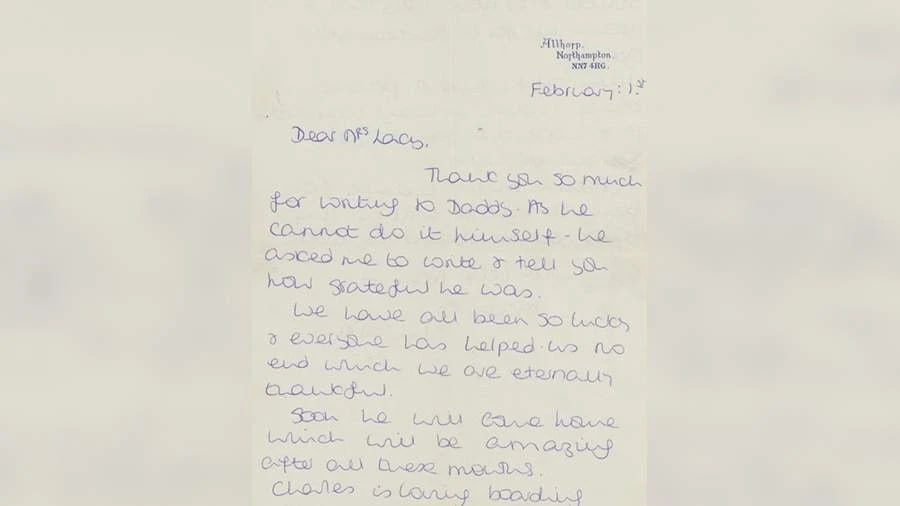 Althorp,
Northampton.
NN7 4HG.
February: 1st
Dear Mrs Lacy.
Thank you so much
for writing to Daddy. As he
cannot do it himself - he
asked me to write & tell you
how grateful he was.
We have all been so lucky
& everyone has helped us no
end which we are eternally
thankful.
Soon he will come home
which will be amazing
after all these months.
Charles is loving boarding